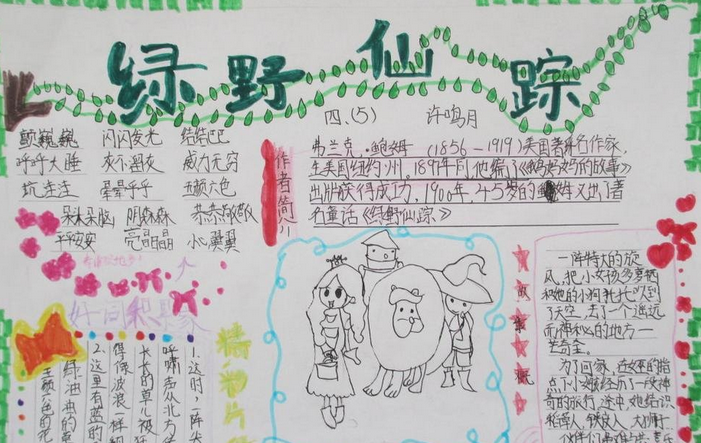 绿野仙踪
四、(5) 许鸣月
颤巍巍 闪闪发光 结结巴巴
呼呼大睡 夜不闭夜 威力无穷
坑洼洼 晕晕乎乎 五颜六色
呆呆头脑 明森森 恭恭敬敬
平安安 亮晶晶 小心翼翼
好词积累家
作者简介
弗兰克·鲍姆 (1856-1919)美国著名作家,
生美国纽约州,1897年间,他编了《鹅妈妈的故事》
出版获得成功,1900年,45岁的鲍姆又出了著
名童话《绿野仙踪》
精彩片段
1.这时,一阵尖
呼啸声从北方
长长的草儿被狂
得像波浪一样
2.这里有蓝的
绿油油的草
五颜六色的花
故事梗概
一阵特大的旋
风,把小女孩多萝茜
和她的小狗托托吹到
了天空,去了一个遥远
而神秘的地方—
芒奇金。
为了回家,在女巫的指
点下,小女孩经历了一段神
奇的旅行。途中,她结识
稻草人、铁皮人、大狮子